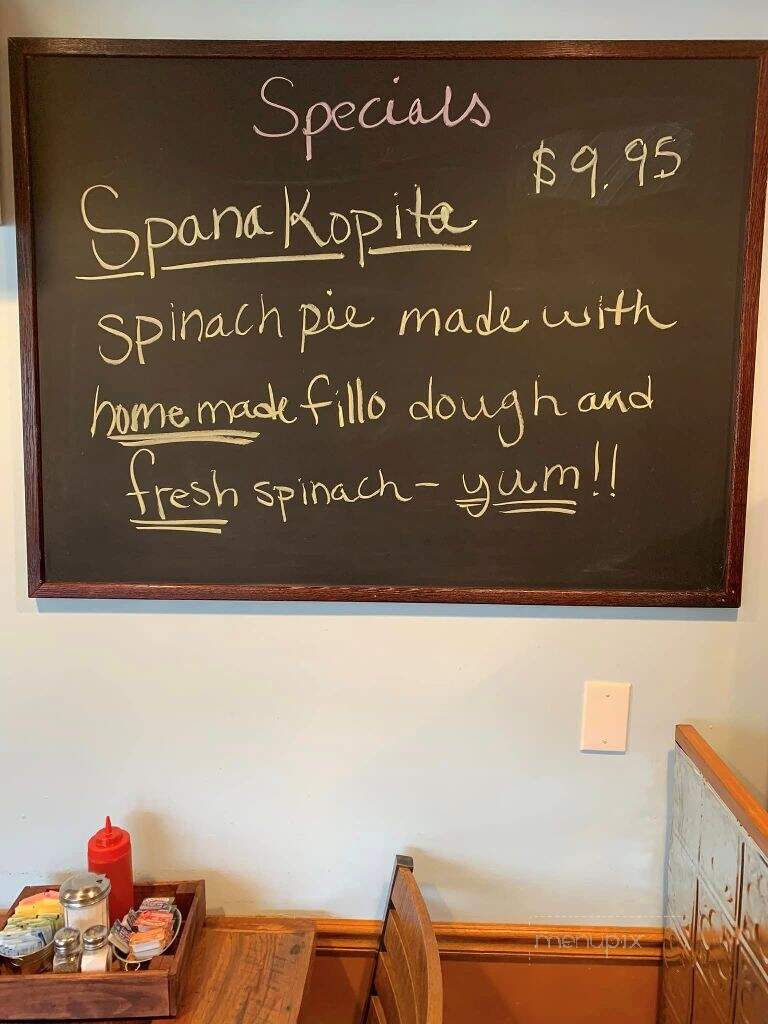 Specials
$9.95
Spanakopita
spinach pie made with
homemade fillo dough and
fresh spinach - yum!!
menupix